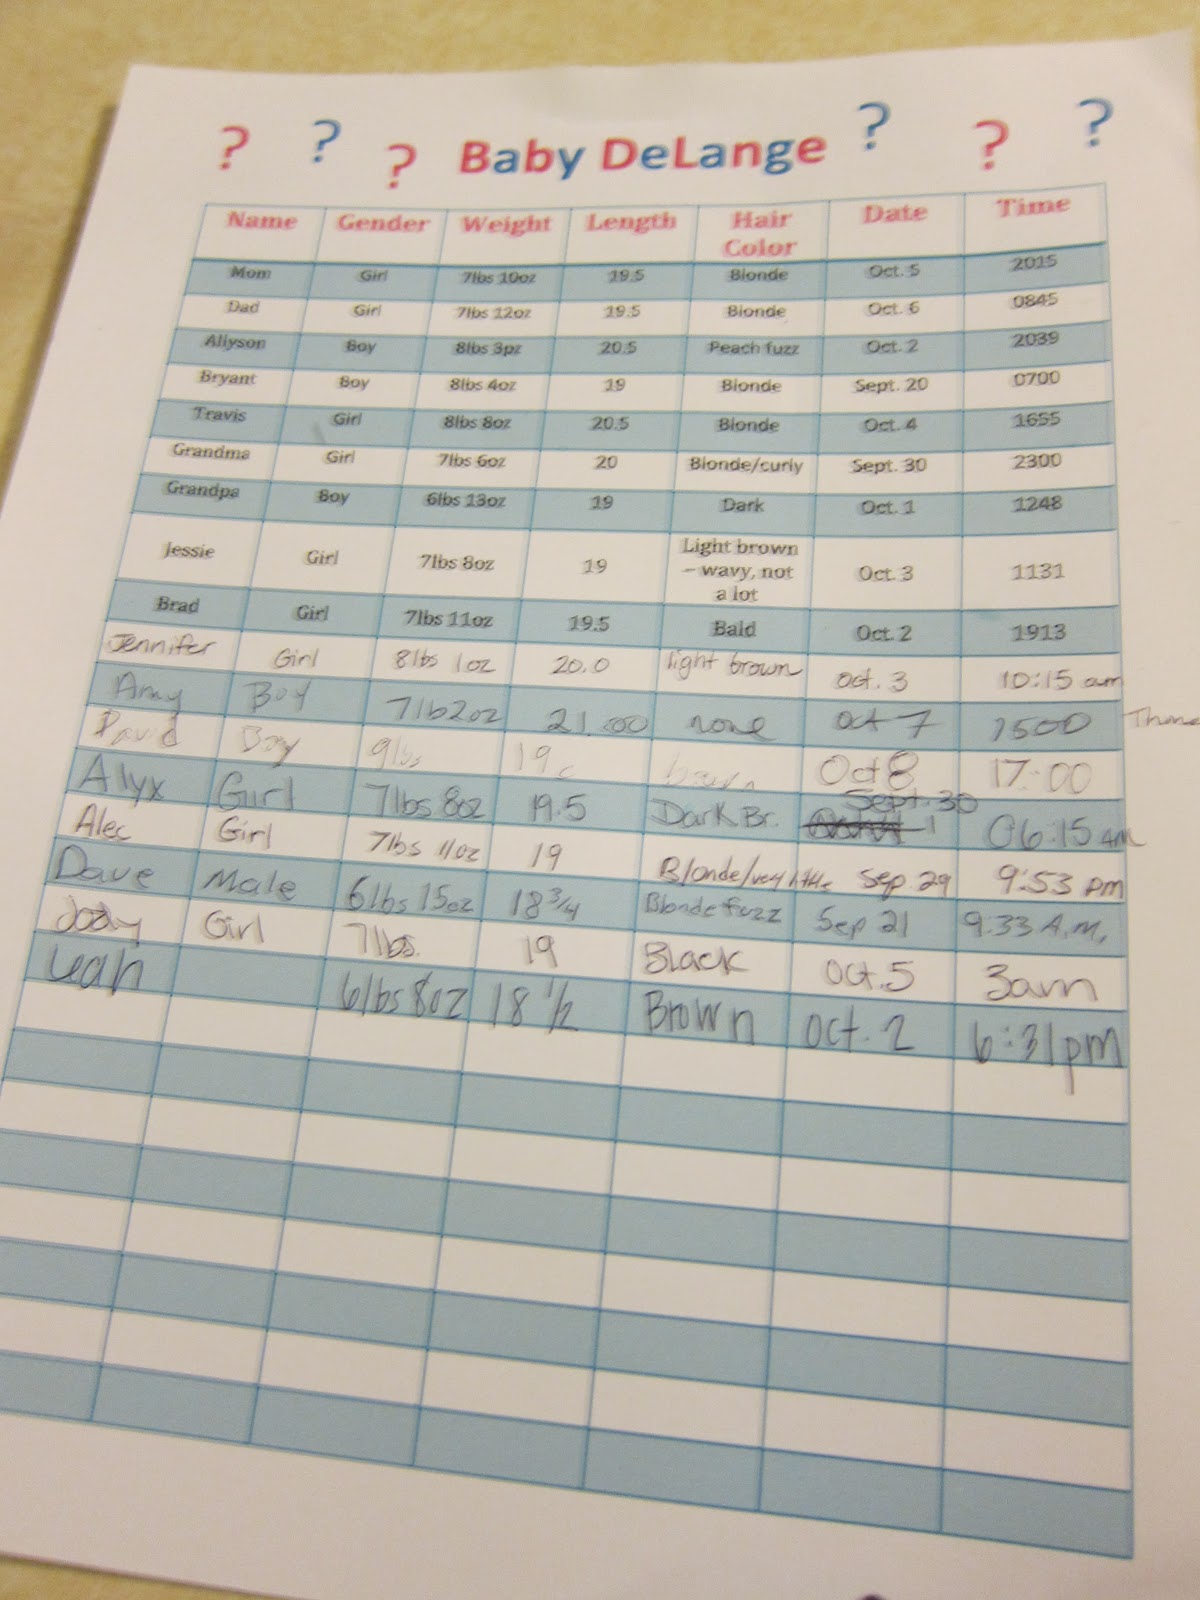 ? ? ? Baby DeLange ? ? ?
Name Gender Weight Length Hair Color Date Time
Mom Girl 7lbs 10oz 19.5 Blonde Oct. 5 2015
Dad Girl 7lbs 12oz 19.5 Blonde Oct. 6 0845
Allyson Boy 8lbs 3pz 20.5 Peach fuzz Oct. 2 2039
Bryant Boy 8lbs 4oz 19 Blonde Sept. 20 0700
Travis Girl 8lbs 8oz 20.5 Blonde Oct. 4 1655
Grandma Girl 7lbs 6oz 20 Blonde/curly Sept. 30 2300
Grandpa Boy 6lbs 13oz 19 Dark Oct. 1 1248
Jessie Girl 7lbs 8oz 19 Light brown – wavy, not a lot Oct. 3 1131
Brad Girl 7lbs 11oz 19.5 Bald Oct. 2 1913
Jennifer Girl 8lbs 1oz 20.0 light brown Oct. 3 10:15 am
Amy Boy 7lb2oz 21.000 none Oct 7 1500
David Boy 9lbs 19 brown Oct 8 17:00
Alyx Girl 7lbs 8oz 19.5 Dark Br. Sept. 30 06:15 AM
Alec Girl 7lbs 11oz 19 Blonde/very little Sep 29 9:53 pm
Dave Male 6lbs 15oz 18 3/4 Blonde fuzz Sep 21 9:33 A.M.
Jody Girl 7lbs. 19 Black Oct. 5 3am
Leah 6lbs 8oz 18 1/2 Brown Oct. 2 6:31pm